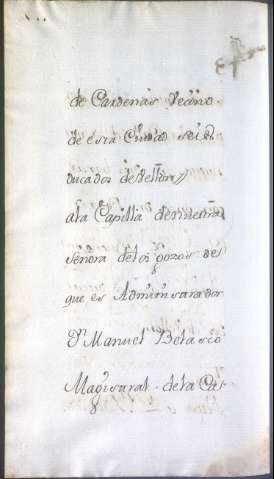 de Cardenas Vecino
de esta Ciudad seis
ducados de Vellon //
ala Capilla denuestra
señora delos gozos de
que es Administrador
Dⁿ Manuel Belasco
Magistral dela Cas-